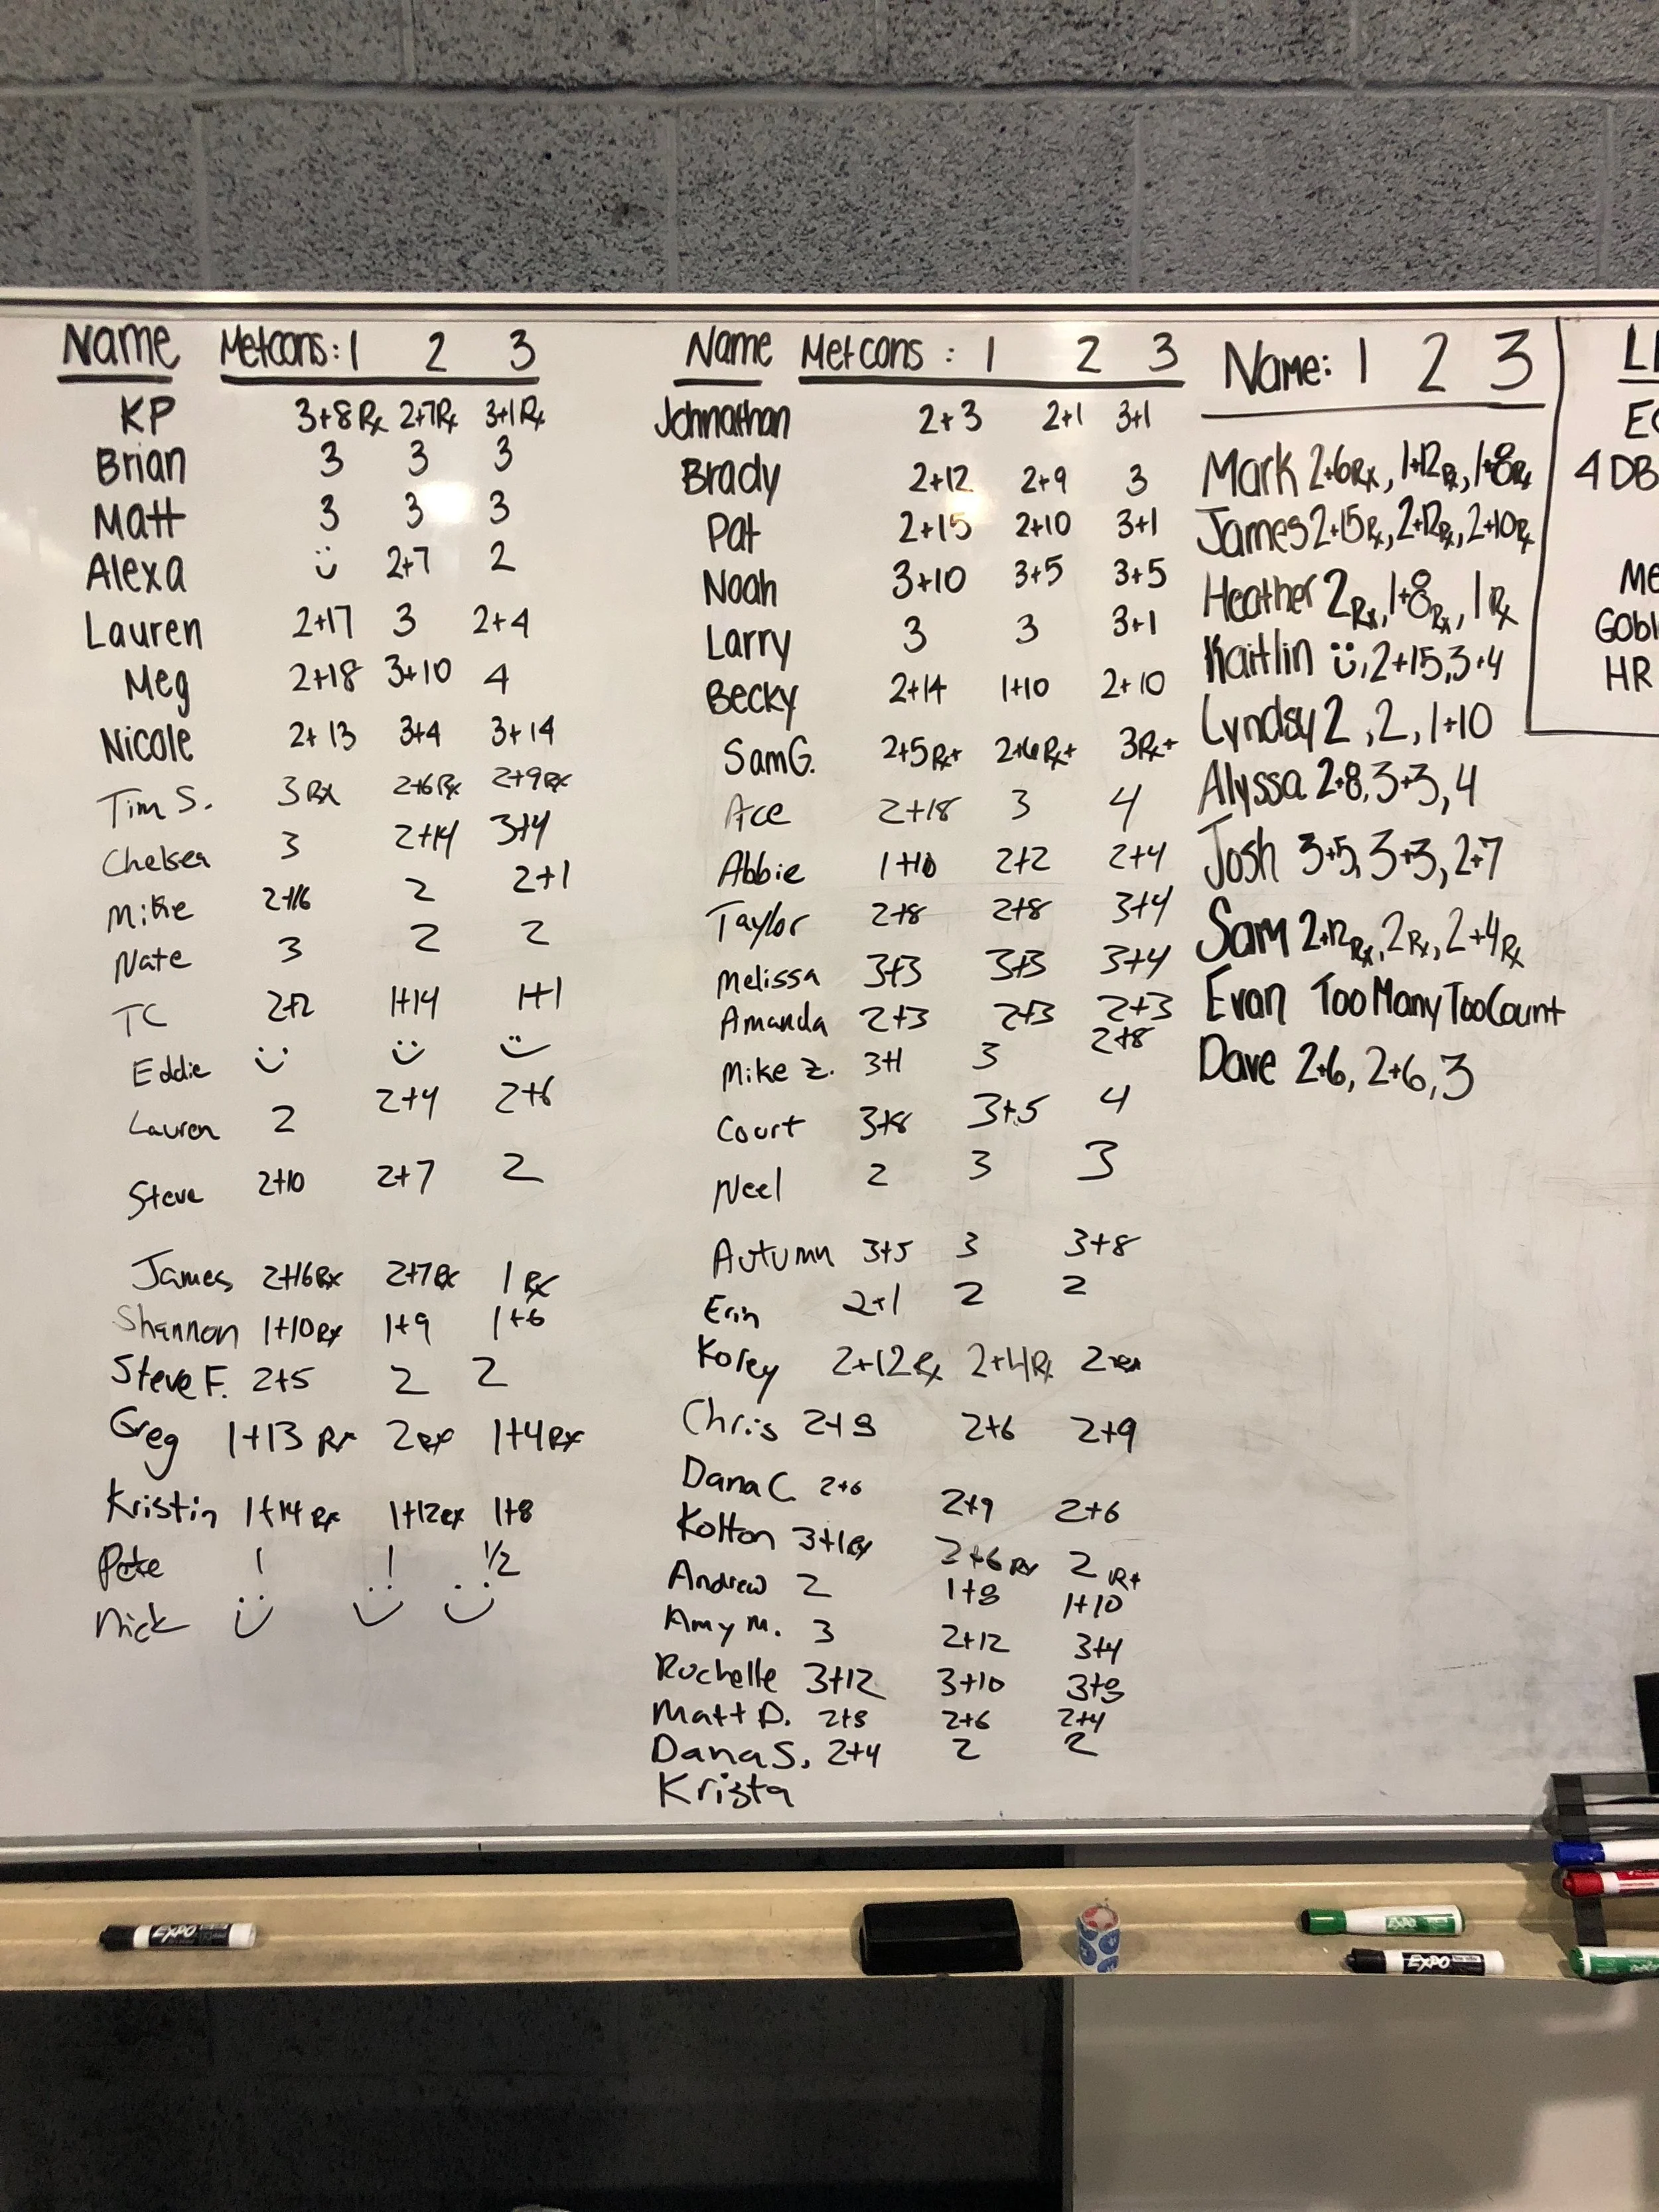 Name Metcons: 1 2 3
KP 3+8 Rx 2+7Rx 3+1Rx
Brian 3 3 3
Matt 3 3 3
Alexa 2+7 2
Lauren 2+17 3 2+4
Meg 2+18 3+10 4
Nicole 2+13 3+4 3+14
Tim S. 3Rx 2+6Rx 2+9Rx
Chelsea 3 2+14 3+4
Mike 2+16 2 2+1
Nate 3 2 2
TC 2+2 1+14 1+1
Eddie
Lauren 2 2+4 2+6
Steve 2+10 2+7 2
James 2+16Rx 2+7Rx 1Rx
Shannon 1+10Rx 1+9 1+6
Steve F. 2+5 2 2
Greg 1+13 Rx 2Rx 1+4Rx
Kristin 1+14Rx 1+12Rx 1+8
Pete ! ! 1/2
Nick
Name Metcons: 1 2 3
Johnathan 2+3 2+1 3+1
Brady 2+12 2+9 3
Pat 2+15 2+10 3+1
Noah 3+10 3+5 3+5
Larry 3 3 3+1
Becky 2+14 1+10 2+10
Sam G. 2+5Rx+ 2+6Rx+ 3Rx+
Ace 2+18 3 4
Abbie 1+10 2+2 2+4
Taylor 2+8 2+8 3+4
Melissa 3+3 3+3 3+4
Amanda 2+3 2+3 2+3
Mike Z. 3+1 3 2+8
Court 3+8 3+5 4
Neel 2 3 3
Autumn 3+5 3 3+8
Erin 2+1 2 2
Korey 2+12Rx 2+4Rx 2Rx
Chris 2+8 2+6 2+9
Dana C. 2+6 2+9 2+6
Kolton 3+1Rx 2+6Rx 2 Rx
Andrew 2 1+8 1+10
Amy M. 3 2+12 3+4
Rochelle 3+12 3+10 3+8
Matt D. 2+8 2+6 2+4
Dana S. 2+4 2 2
Krista
Name: 1 2 3
Mark 2+6Rx, 1+12Rx, 1+8Rx
James 2+15Rx, 2+12Rx, 2+10Rx
Heather 2Rx, 1+8Rx, 1Rx
Kaitlin , 2+15, 3+4
Lyndsy 2, 2, 1+10
Alyssa 2+8, 3+3, 4
Josh 3+5, 3+3, 2+7
Sam 2+12Rx, 2Rx, 2+4Rx
Evan Too Many Too Count
Dave 2+6, 2+6, 3
4 DB
HR
EXPO
EXPO
EXPO